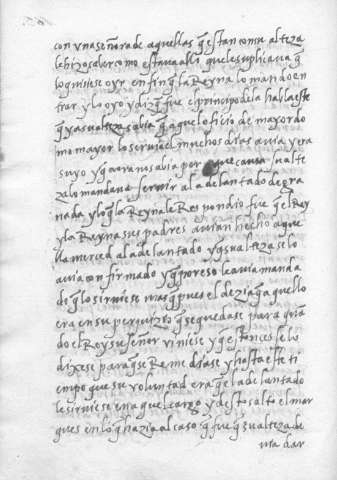 con vna señara de aquellas q̃ estan con su alteza
le hizo saber como estaua allí que le suplicaua q̃
lo quisiese oyr en fin q̃ la Reyna lo mando en
trar y lo oyo y dizq̃ fue el principo de la habla este
q̃ ya su alteza sabia q̃ aquel oficio de mayordo
mo mayor lo seruia el muchos dias auia y era
suyo y q̃ aora no sabia por que causa su alte
za lo mandaua seruir al adelantado de gra
nada y lo q̃ la Reyna le Respondio fue q̃ el Rey
y la Reyna sus padres auian hecho aque
lla merced al adelantado y q̃ su alteza se lo
auia confirmado y q̃ por eso le auia manda
do q̃ lo siruiese mas q̃ pues el dezia q̃ aquello
era en su perjuizio q̃ se quedase para quã
do el Rey su señor viniese y q̃ entonces se lo
dixese para que Remediase y hasta este ti
empo que su voluntad era q̃ el adelantado
le siruiese en aquel cargo y desto salto el mar
ques en lo q̃ hazia al caso q̃ fue q̃ su alteza de
uia dar